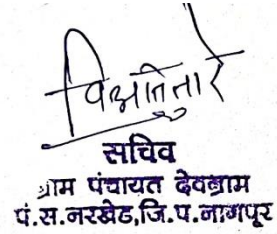 सचिव
ग्राम पंचायत देवग्राम
पं.स.नरखेड,जि.प.नागपूर